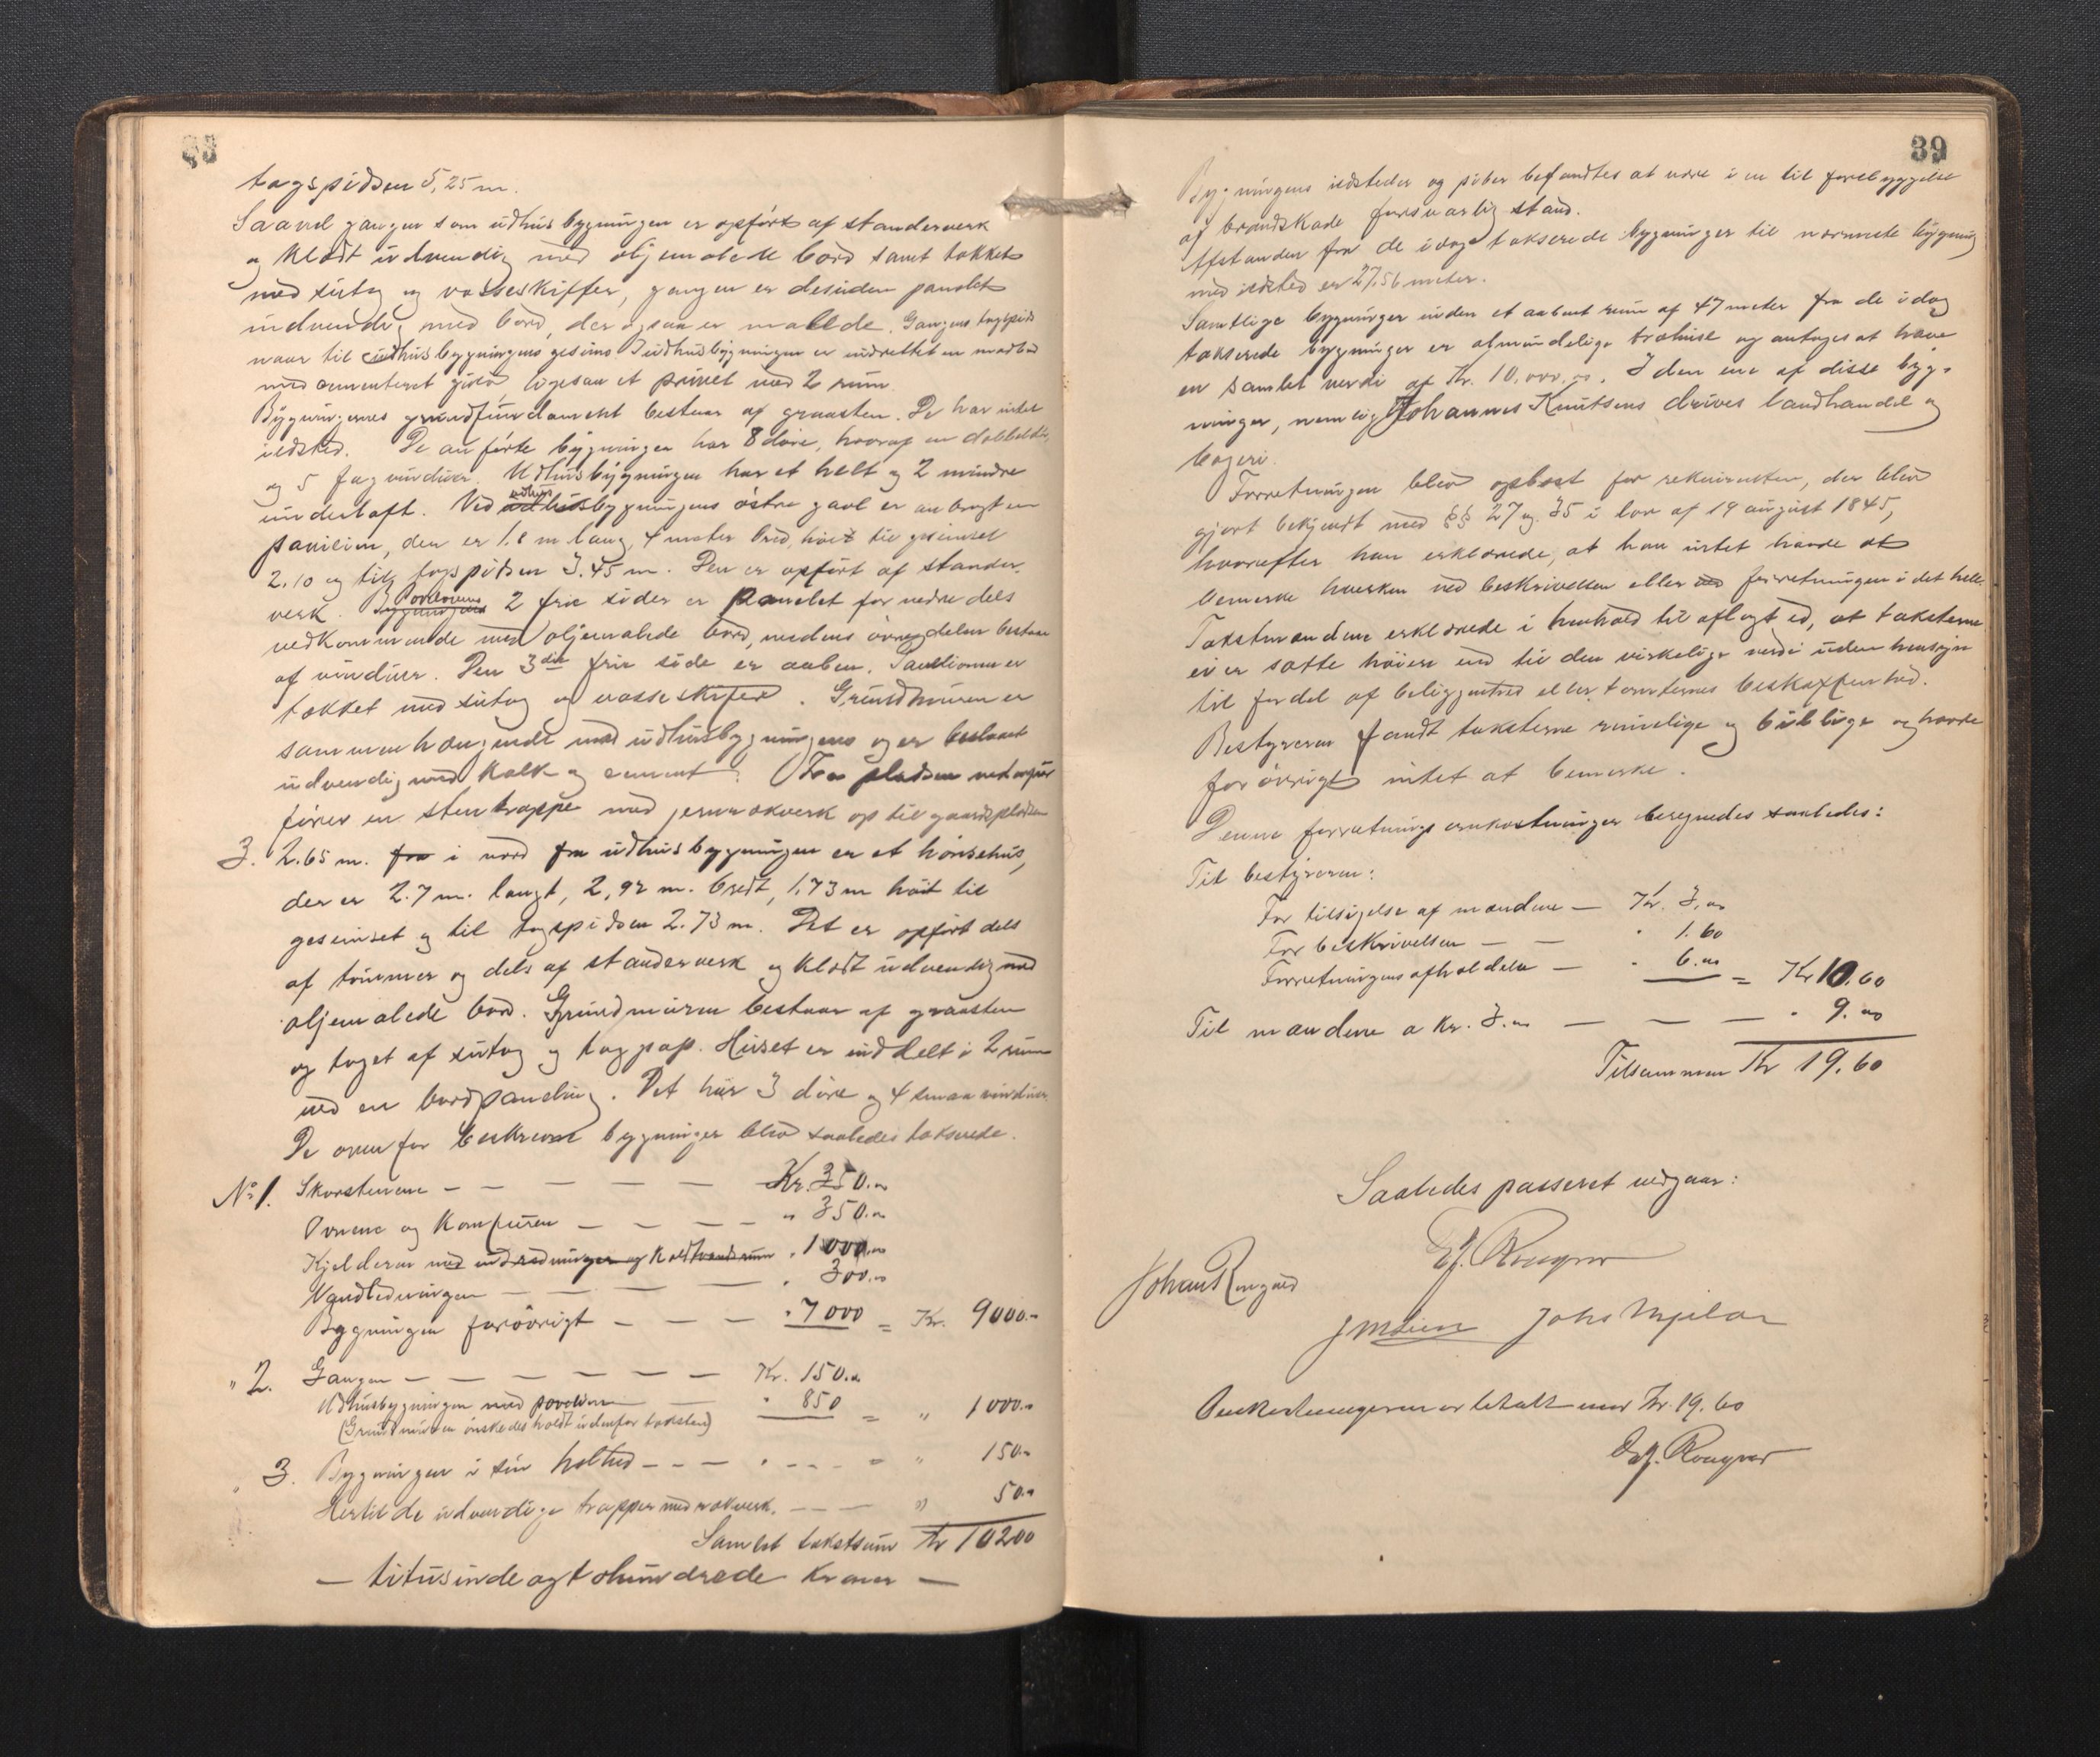 tagspidsen 5,25 m.
Saavel gangen som udhusbygningen er opført af standerverk
og klædt udvendig med oljemalede bord samt tækket
med sutag og vosseskiffer, gangen er desuden panelet
indvendig med bord, der ogsaa er malede. Gangens tagspids
naar til udhusbygningens gesims. I udhusbygningen er indrettet en
med cementeret gulv, ligesaa et privet med 2 rum.
Bygningernes grundfundament bestaar af graasten. De har intet
ildsted. De anførte bygninger har 8 døre, hvoraf en dobbelt,
og 5 fag vinduer. Udhusbygningen har et helt og 2 mindre
underloft. Ved udhusbygningens østre gavl er anbragt en
pavilion, der er 1.8 m lang, 4 meter bred, høit til gesimset
2.10 og til tagspidsen 3.45 m. Den er opført af stander-
verk. Pavilionens 2 frie sider er panelet for nedre dels
vedkommende med oljemalede bord, medens øvre delen bestaar
af vinduer. Den 3die frie side er aaben. Pavilionen er
tækket med sutag og vosseskifer. Grundmuren er
sammenhængende med udhusbygningens og er beslaaet
udvendig med kalk og cement. Fra pladsen nedenfor
fører en stentrappe med jernrækverk op til gaardspladsen
3. 2.65 m. fra i nord fra udhusbygningen er et hønsehus,
der er 2.7 m. langt, 2,92 m. bredt, 1.73 m høit til
gesimset og til tagspidsen 2.73 m. Det er opført dels
af tømmer og dels af standerverk og klædt udvendig med
oljemalede bord. Grundmuren bestaar af graasten
og taget af sutag og tagpap. Huset er inddelt i 2 rum
ved en bordpaneling. Det har 3 døre og 4 smaa vinduer
De ovenfor beskrevne bygninger blev saaledes takserede.
No 1. Skorstenene — Kr. 350.00
Ovnene og komfuren — " 350.00
Kjelderen med indredninger og koldtvandsrum " 1000.00
Vandledningen — " 300.00
Bygningen forøvrigt — " 7000 = Kr. 9000.-
" 2. Gangen — Kr. 150.00
Udhusbygningen med pavilion — " 850 = " 1000.-
(Grundmuren ønskedes holdt udenfor taksten)
" 3. Bygningen i sin helhed — " 150.-
Hertil de udvendige trapper med rækverk. — " 50.-
Samlet takstsum Kr 10200
— titusinde og tohundrede kroner —
39
Bygningens ildsteder og piber befandtes at være i en til forebyggelse
af brandskade forsvarlig stand.
Afstanden fra de idag takserede bygninger til nærmeste bygning
med ildsted er 27.56 meter.
Samtlige bygninger inden et aabent rum af 47 meter fra de idag
takserede bygninger er almindelige træhuse og antages at have
en samlet verdi af Kr. 10,000.00. I den ene af disse byg-
ninger, nemlig Johannes Knutsens drives landhandel og
bageri.
Forretningen blev oplæst for rekvirenten, der blev
gjort bekjendt med §§ 27 og 35 i lov af 19 august 1845,
hvorefter han erklærede, at han intet havde at
bemerke hverken ved beskrivelsen eller ved forretningen i det hele
Takstmændene erklærede i henhold til aflagt ed, at taksterne
ei er satte høiere end til den virkelige verdi uden hensyn
til fordel af beliggenhed eller tomternes beskaffenhed.
Bestyreren fandt taksterne rimelige og billige og havde
forøvrigt intet at bemerke.
Denne forretnings omkostninger beregnedes saaledes:
Til bestyreren:
For tilsigelse af mændene — Kr. 3.00
For beskrivelsen — " 1.60
Forretningens afholdelse — " 6.00 = Kr 10.60
Til mændene a Kr. 3.00 — — — " 9.00
Tilsammen Kr 19.60
Saaledes passeret vedgaar:
Johan
Omkostningerne er betalt med Kr. 19.60